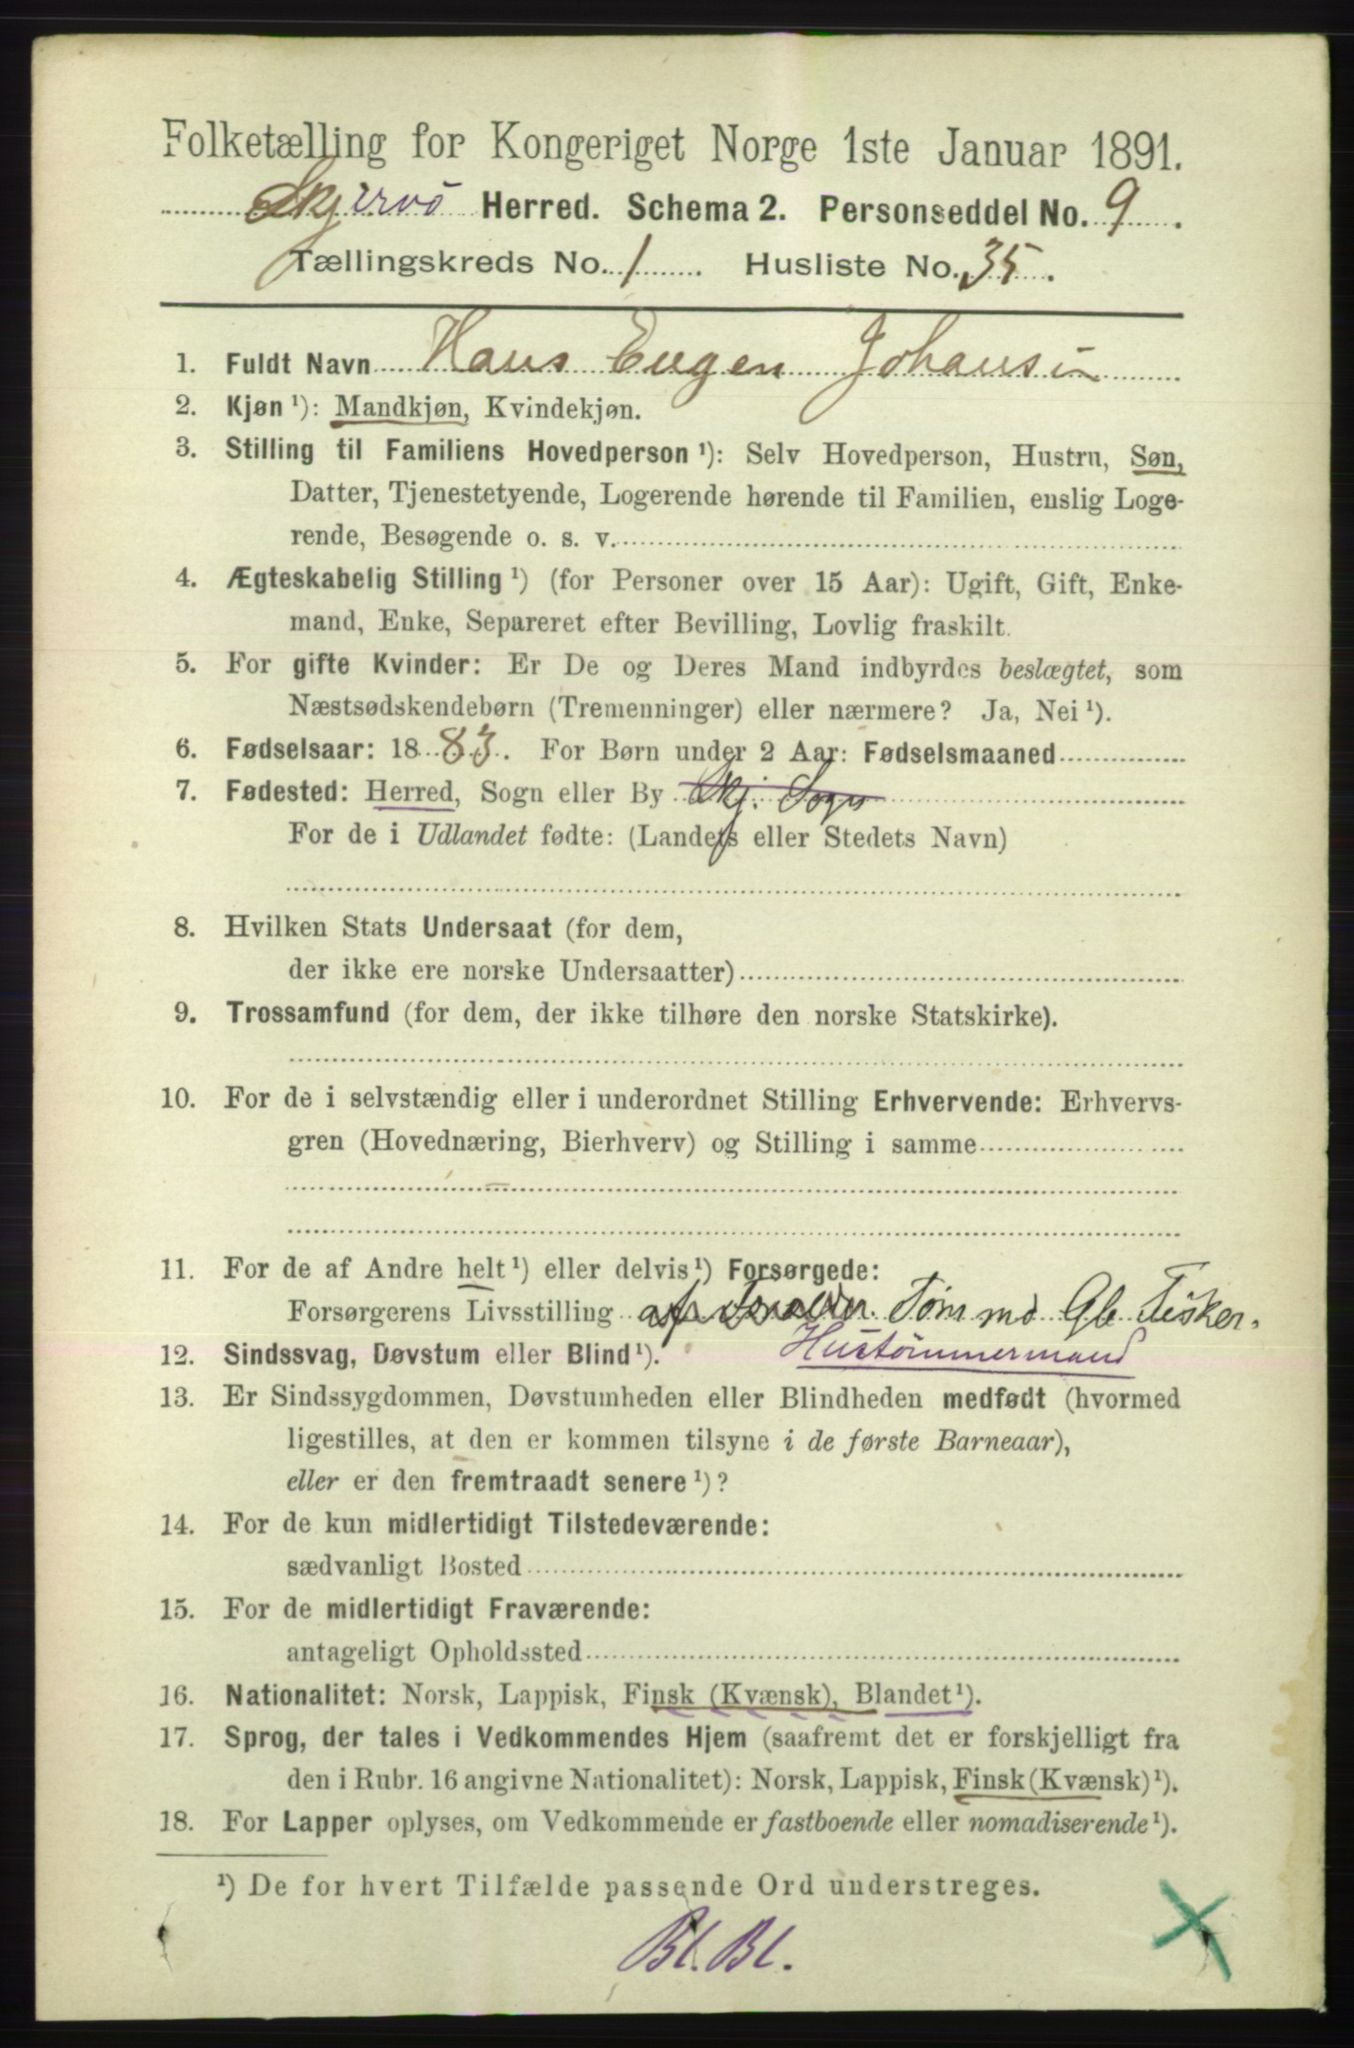 Folketælling for Kongeriget Norge 1ste Januar 1891.
Skjervö Herred. Schema 2. Personseddel No. 9.
Tællingskreds No. 1. Husliste No. 35.
1. Fuldt Navn Hans Eugen Johansen
2. Kjøn ¹): Mandkjøn, Kvindekjøn.
3. Stilling til Familiens Hovedperson ¹): Selv Hovedperson, Hustru, Søn,
Datter, Tjenestetyende, Logerende hørende til Familien, enslig Loge-
rende, Besøgende o. s. v.
4. Ægteskabelig Stilling ¹) (for Personer over 15 Aar): Ugift, Gift, Enke-
mand, Enke, Separeret efter Bevilling, Lovlig fraskilt.
5. For gifte Kvinder: Er De og Deres Mand indbyrdes beslægtet, som
Næstsødskendebørn (Tremenninger) eller nærmere? Ja, Nei ¹).
6. Fødselsaar: 1883. For Børn under 2 Aar: Fødselsmaaned
7. Fødested: Herred, Sogn eller By Skj. Sogn
For de i Udlandet fødte: (Landets eller Stedets Navn)
8. Hvilken Stats Undersaat (for dem,
der ikke ere norske Undersaatter)
9. Trossamfund (for dem, der ikke tilhøre den norske Statskirke).
10. For de i selvstændig eller i underordnet Stilling Erhvervende: Erhvervs-
gren (Hovednæring, Bierhverv) og Stilling i samme
11. For de af Andre helt ¹) eller delvis ¹) Forsørgede:
Forsørgerens Livsstilling af Forælder. Tømmd Gb. Fisker.
12. Sindssvag, Døvstum eller Blind ¹). Hustømmermand
13. Er Sindssygdommen, Døvstumheden eller Blindheden medfødt (hvormed
ligestilles, at den er kommen tilsyne i de første Barneaar),
eller er den fremtraadt senere ¹)?
14. For de kun midlertidigt Tilstedeværende:
sædvanligt Bosted
15. For de midlertidigt Fraværende:
antageligt Opholdssted
16. Nationalitet: Norsk, Lappisk, Finsk (Kvænsk), Blandet ¹).
17. Sprog, der tales i Vedkommendes Hjem (saafremt det er forskjelligt fra
den i Rubr. 16 angivne Nationalitet): Norsk, Lappisk, Finsk (Kvænsk) ¹).
18. For Lapper oplyses, om Vedkommende er fastboende eller nomadiserende ¹).
¹) De for hvert Tilfælde passende Ord understreges.
Bl. Bl.